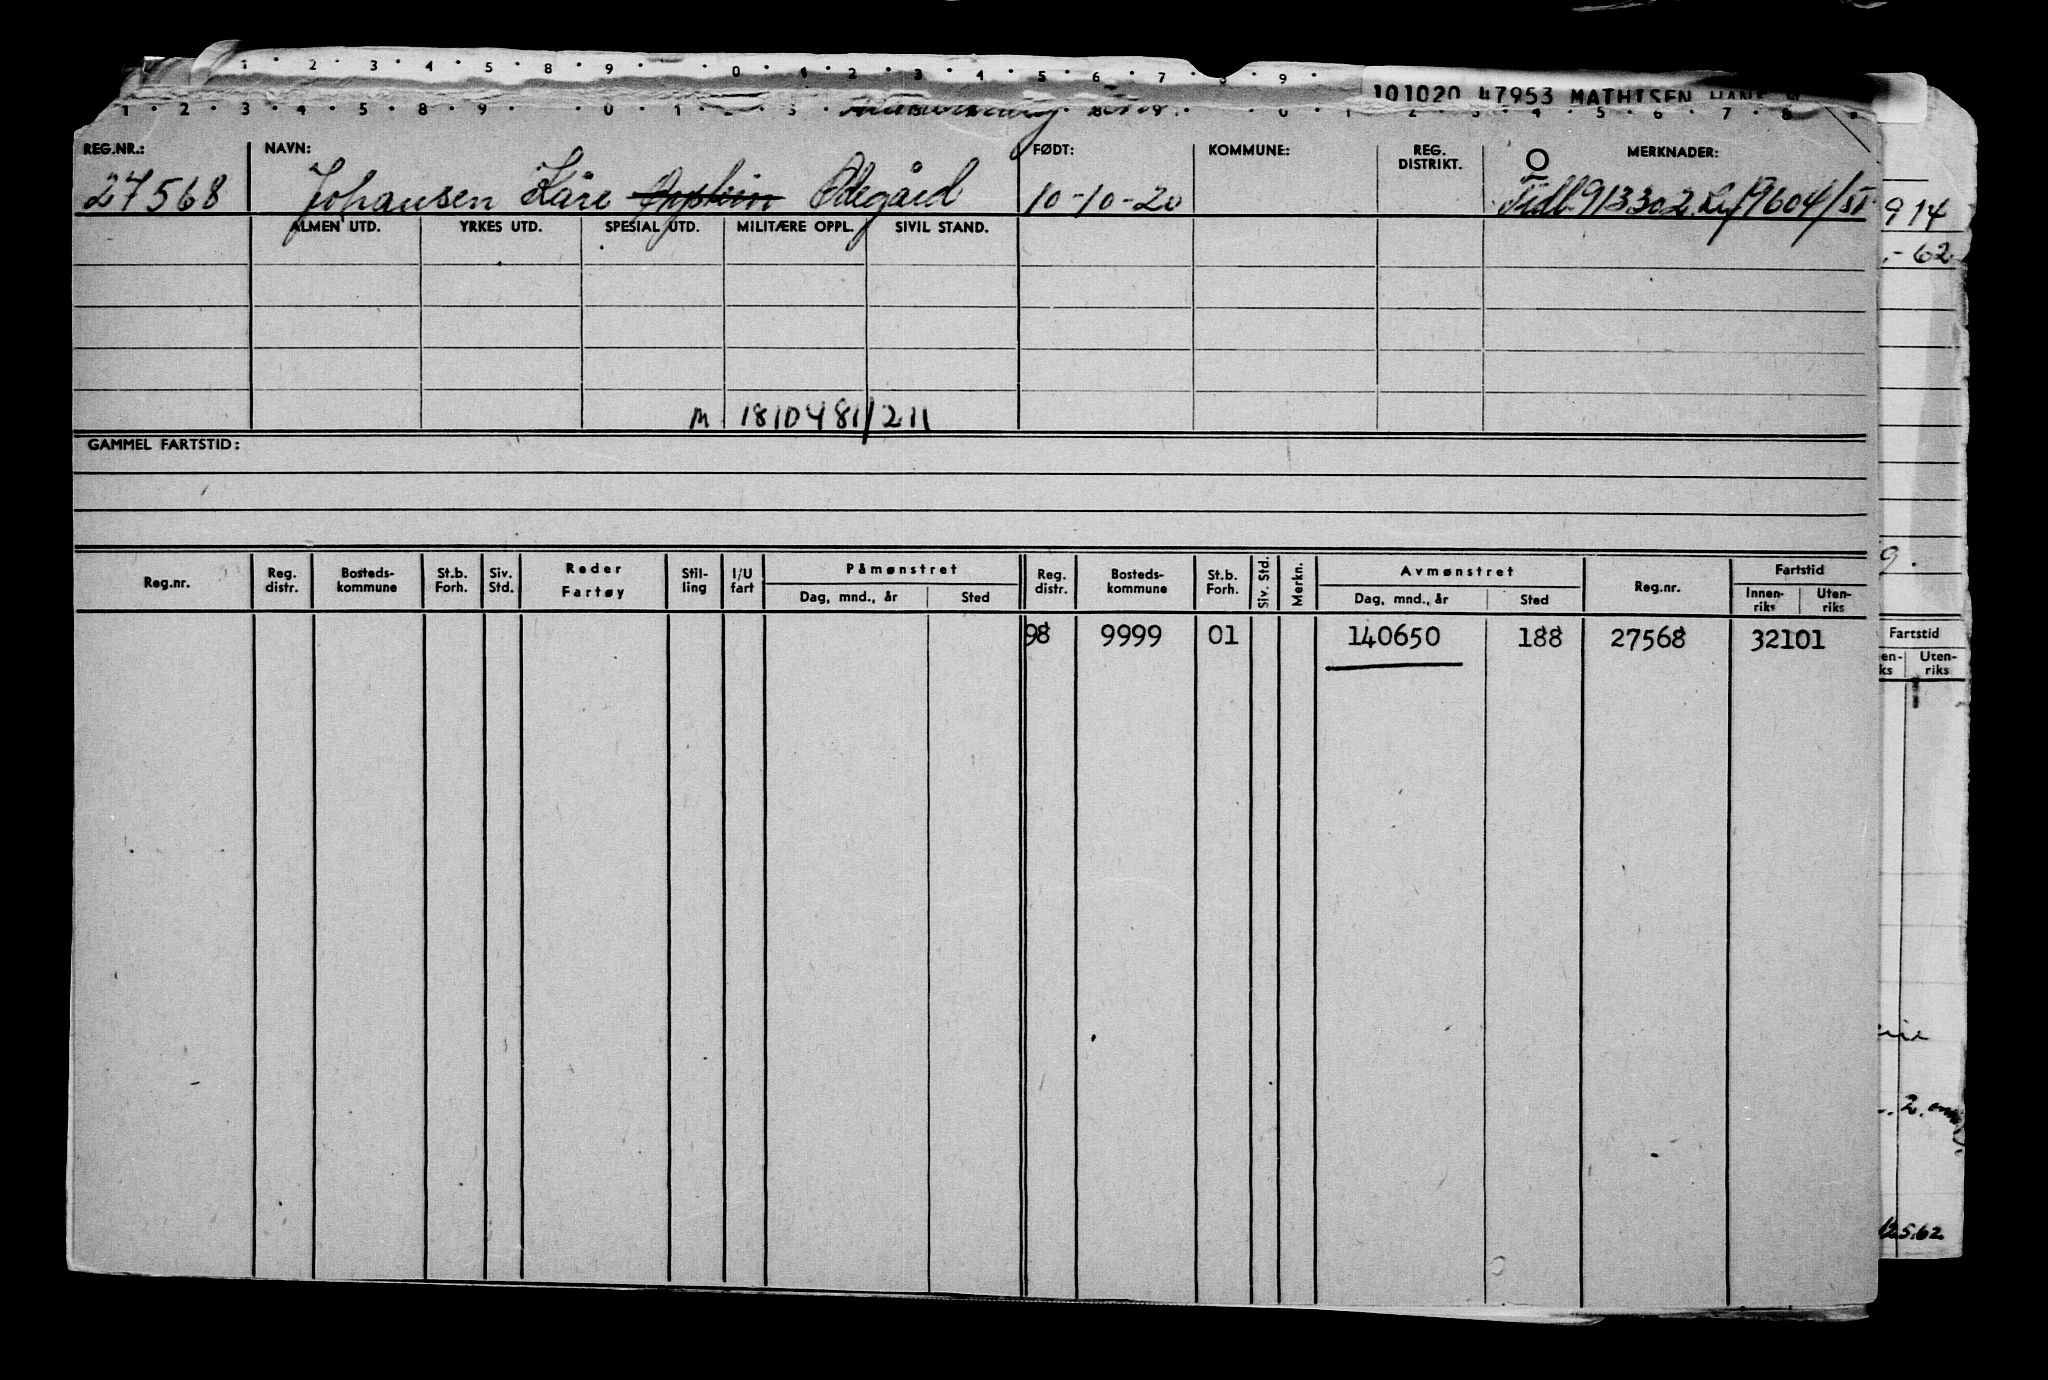 1 · 2 · 3 · 4 · 5 · 8 · 9 · 0 · 1 · 2 · 3 · 4 · 5 · 6 · 7 · 8 · 9 ·
101020 47953 MATHISEN
1 · 2 · 3 · 4 · 5 · 8 · 9 · 0 · 1 · 2 · 3 · 0 · 1 · 2 · 3 · 4 · 5 · 6 · 7 · 8
REG.NR.: NAVN: FØDT: KOMMUNE: REG. DISTRIKT. MERKNADER:
27568 Johansen Kåre Øystein Ødegård 10-10-20 Fidl. 913302 Lnr 19604/51
914
ALMEN UTD. YRKES UTD. SPESIAL UTD. MILITÆRE OPPL. SIVIL STAND.
- 62
M 1810481/211
GAMMEL FARTSTID:
9.
Reg.nr. Reg. distr. Bosteds-kommune St.b. Forh. Siv. Std. Reder Fartøy Stil-ling I/U fart Påmønstret Dag, mnd., år Sted Reg. distr. Bosteds-kommune St.b. Forh. Siv. Std. Merkn. Avmønstret Dag, mnd., år Sted Reg.nr. Fartstid Innen-riks Uten-riks
98 9999 01 140650 188 27568 32101
Fartstid
en-ks Uten-riks
2.
12.5.62